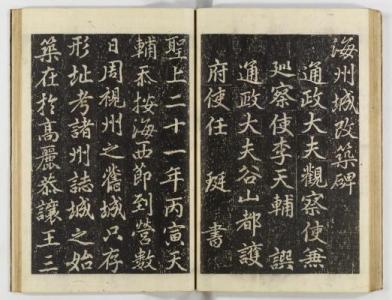 海州城改築碑
通政大夫觀察使無
廵察使李天輔 譔
通政大夫谷山都護
府使任 珽 書
聖上二十一年丙寅天
輔忝按海西節到營數
日周視州之舊城只存
形址考諸州誌城之始
築在於高麗恭讓王三